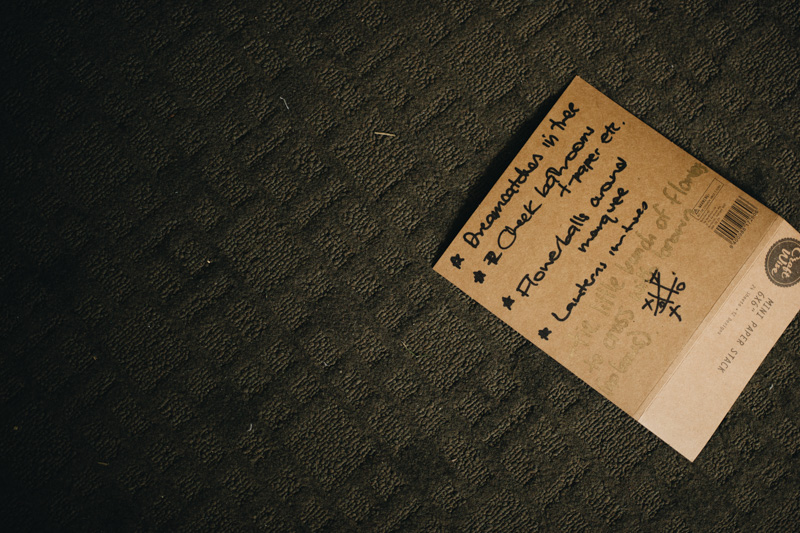 ★ Dreamcatchers in tree
★ Check bathrooms
+ paper etc.
★ Flowerballs around
marquee
★ Lanterns in trees
little bunch of flowers
Craft
Wise
6X6"
MINI PAPER STACK